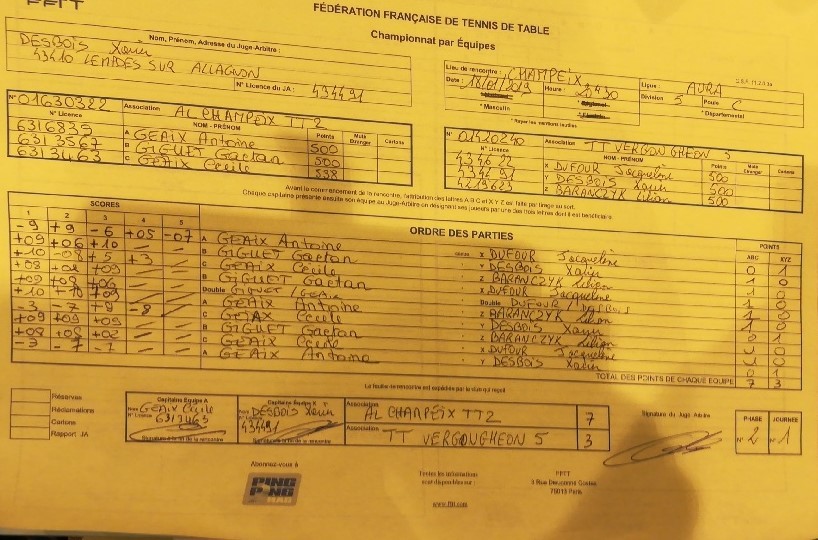 FFTT
FÉDÉRATION FRANÇAISE DE TENNIS DE TABLE
Championnat par Équipes
Nom, Prénom, Adresse du Juge-Arbitre :
DESBOIS Xavier
43410 LEMPDES SUR ALLAGNON
N° Licence du JA : 434491
Lieu de rencontre : CHAMPEIX
Date : 18/01/2019 Heure : 20h30 Ligue : AURA
Division 5 Poule C
* Masculin * Départemental
* Rayer les mentions inutiles
N° 01630322 Association AL CHAMPEIX TT 2
N° Licence NOM - PRÉNOM Points Muté Etranger Cartons
6316835 A GEAIX Antoine 500
6313567 B GIGUET Gaetan 500
6313463 C GEAIX Cecile 538
N° 01420240 Association TT VERGONGHEON 5
N° Licence NOM - PRÉNOM Points Muté Etranger Cartons
434622 X DUFOUR Jacqueline 500
434491 Y DESBOIS Xavier 500
4219623 Z BARANCZYK Lilian 500
Avant le commencement de la rencontre, l'attribution des lettres A B C et X Y Z est faite par tirage au sort.
Chaque capitaine présente ensuite son équipe au Juge-Arbitre en désignant ses joueurs par une des trois lettres dont il est bénéficiaire
SCORES ORDRE DES PARTIES POINTS
1 2 3 4 5 ABC XYZ
-9 +9 -6 +05 -07 A GEAIX Antoine contre X DUFOUR Jacqueline 0 1
+09 +06 +10 B GIGUET Gaetan Y DESBOIS Xavier 1 0
+10 -08 +5 +3 C GEAIX Cecile Z BARANCZYK Lilian 1 0
+08 +08 +09 B GIGUET Gaetan X DUFOUR Jacqueline 1 0
+09 +08 +06 Double GIGUET / GEAIX Double DUFOUR / DESBOIS 1 0
+10 -10 +09 A GEAIX Antoine Z BARANCZYK Lilian
-3 -7 +9 -8 C GEAIX Cecile Y DESBOIS Xavier
+09 +09 +09 B GIGUET Gaetan Z BARANCZYK Lilian
+08 +08 +02 C GEAIX Cecile X DUFOUR Jacqueline
-3 -7 -7 A GEAIX Antoine Y DESBOIS Xavier 0 1
TOTAL DES POINTS DE CHAQUE EQUIPE 7 3
La feuille de rencontre est expédiée par le club qui reçoit
Réserves
Réclamations
Cartons
Rapport JA
Capitaine Equipe A
Nom GEAIX Cecile
N° Licence 6313463
Signature à la fin de la rencontre
Capitaine Equipe X
Nom DESBOIS Xavier
N° Licence 434491
Signature à la fin de la rencontre
Association AL CHAMPEIX TT2 7
Association TT VERGONGHEON 5 3
Signature du Juge Arbitre
PHASE JOURNÉE
N° 2 N° 1
Abonnez-vous à
PING PONG MAG
Toutes les informations
sont disponibles sur :
www.fftt.com
FFTT
3 Rue Dieudonné Costes
75013 Paris